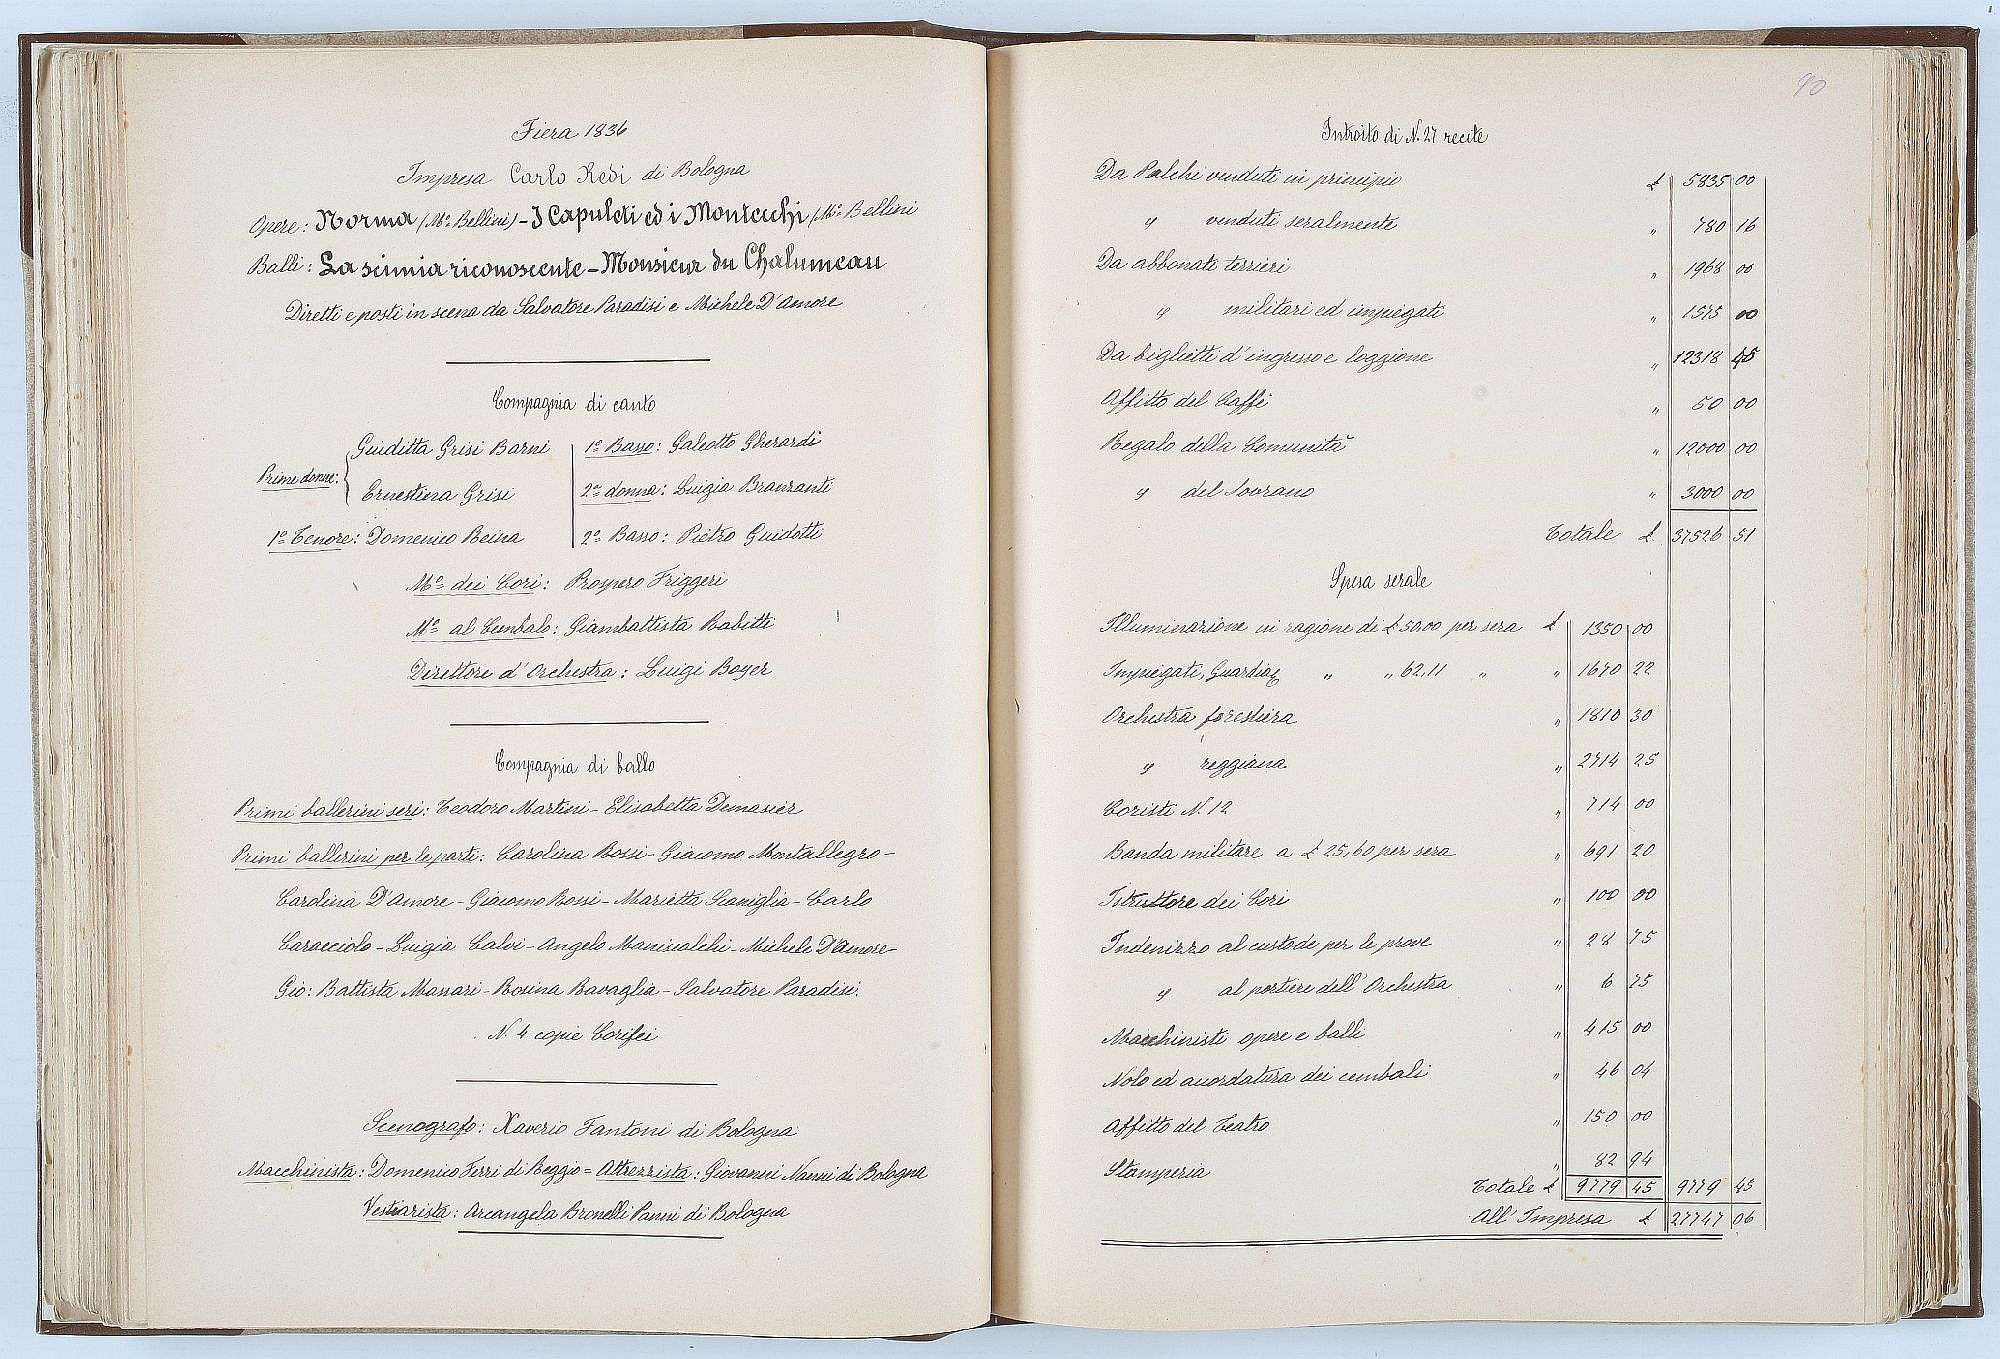 Fiera 1836
Impresa Carlo Redi di Bologna
Opere: Norma (Mo. Bellini) - I Capuleti ed i Montecchi (Mo. Bellini
Balli: La scimia riconoscente - Monsieur du Chalumeau
Diretti e posti in scena da Salvatore Paradisi e Michele D'Amore
Compagnia di canto
Prime donne: { Giuditta Grisi Barni
Ernestina Grisi
1o Tenore: Domenico Reina
1o Basso: Galeotto Gherardi
2a donna: Luigia Branzanti
2o Basso: Pietro Guidotti
Mo dei Cori: Prospero Friggeri
Mo al Cembalo: Giambattista Rabitti
Direttore d'Orchestra: Luigi Boyer
Compagnia di ballo
Primi ballerini seri: Teodoro Martini - Elisabetta Demasier
Primi ballerini per le parti: Carolina Rossi - Giacomo Montallegro -
Carolina D'Amore - Giacomo Rossi - Marietta Scaniglia - Carlo
Caracciolo - Luigia Calvi - Angelo Maniscalchi - Michele D'Amore -
Gio: Battista Massari - Rosina Ravaglia - Salvatore Paradisi.
N. 4 copie Corifei
Scenografo: Xaverio Fantoni di Bologna
Macchinista: Domenico Ferri di Reggio = Attrezzista: Giovanni Nanni di Bologna
Vestiarista: Arcangela Bronelli Panni di Bologna
90
Introito di N. 27 recite
Da Palchi venduti in principio £ 5835 00
" venduti seralmente " 780 16
Da abbonati terrieri " 1968 00
" militari ed impiegati " 1575 00
Da biglietti d'ingresso e loggione " 12318 45
Affitto del Caffè " 50 00
Regalo della Comunità " 12000 00
" del Sovrano " 3000 00
Totale £ 37526 51
Spesa serale
Illuminazione in ragione di £ 50.00 per sera £ 1350 00
Impiegati, Guardia " " 62,11 " " 1670 22
Orchestra forestiera " 1810 30
" reggiana " 2714 25
Coristi N. 12 " 714 00
Banda militare a £ 25,60 per sera " 691 20
Istruttore dei Cori " 100 00
Indenizzo al custode per le prove " 28 75
" al portiere dell'Orchestra " 6 75
Macchinisti opere e balli " 415 00
Nolo ed accordatura dei cembali " 46 04
Affitto del Teatro " 150 00
Stamperia " 82 94
Totale £ 9779 45 9779 45
All'Impresa £ 27747 06